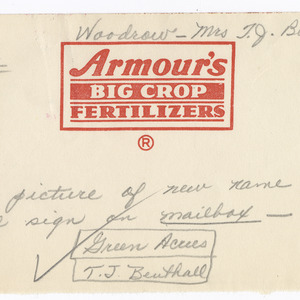 Woodrow - Mrs T.J. 
Armour's
BIG CROP
FERTILIZERS
®
picture of new name
sign on mailbox -
Green Acres
T. J. Benthall